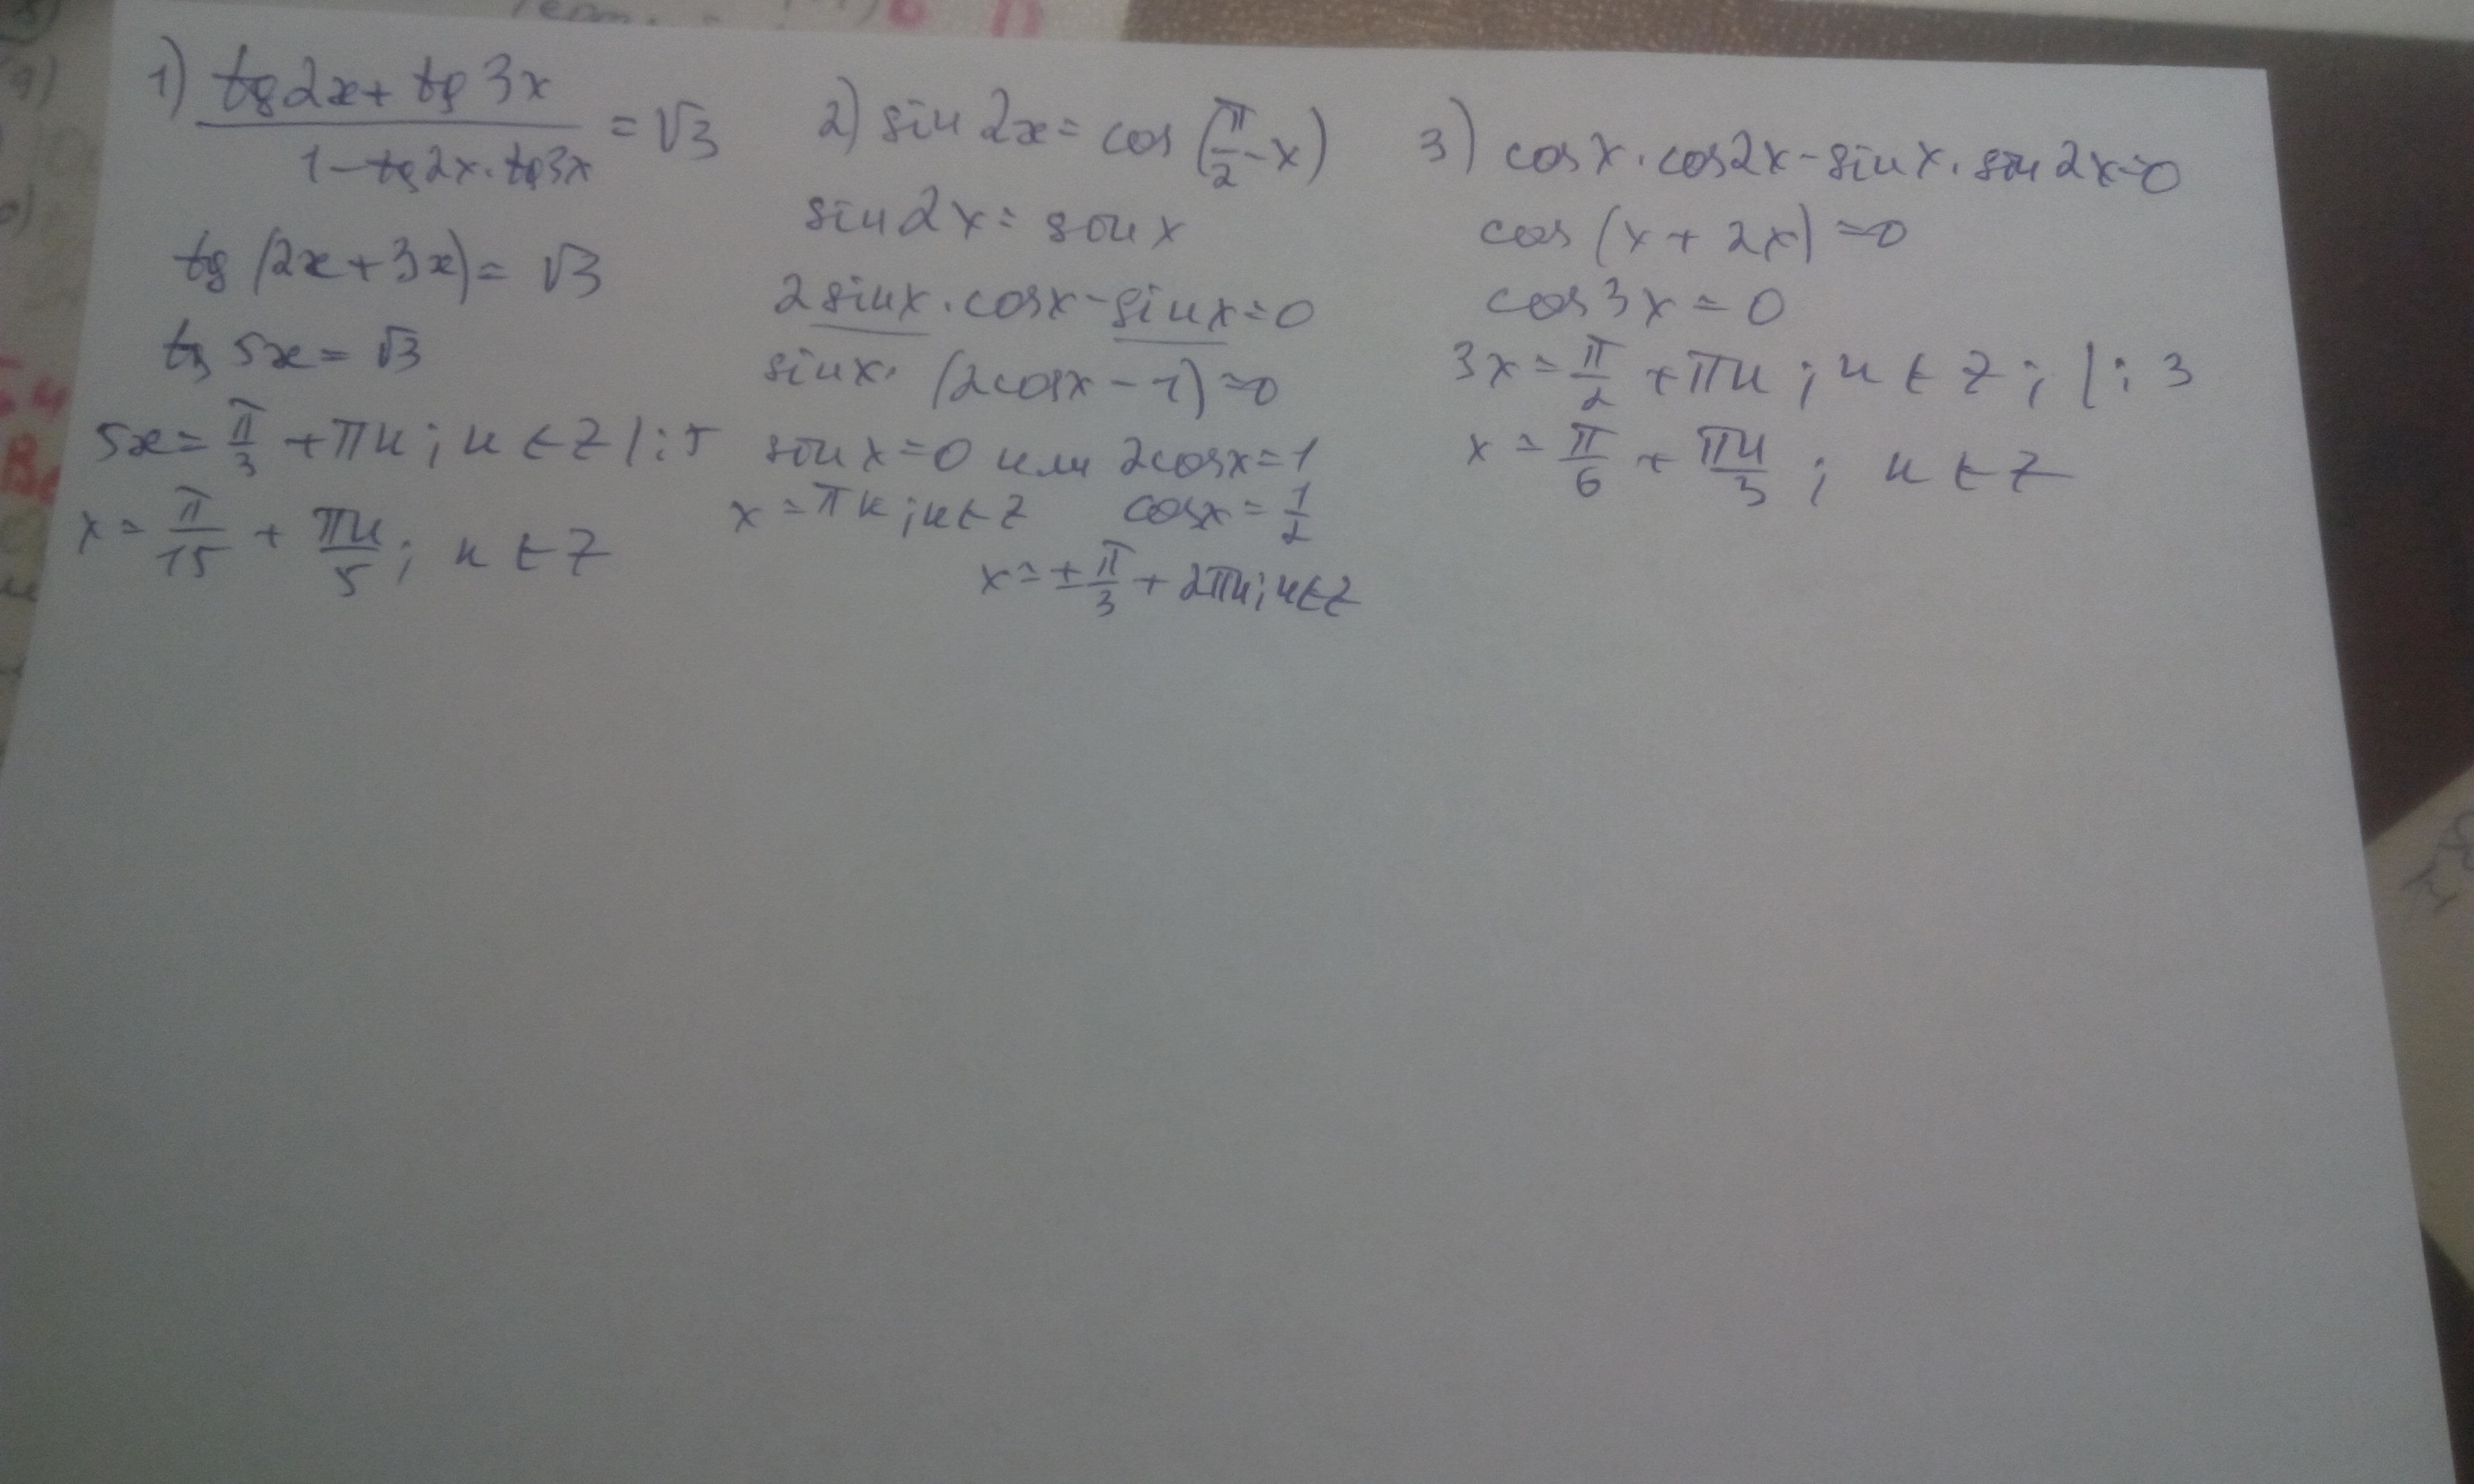 1) tg2x + tg3x
1 - tg2x · tg3x = √3
tg (2x + 3x) = √3
tg 5x = √3
5x = π/3 + πn ; n ∈ Z | : 5
x = π/15 + πn/5 ; n ∈ Z
2) sin 2x = cos (π/2 - x)
sin 2x = sin x
2 sin x · cos x - sin x = 0
sin x · (2cos x - 1) = 0
sin x = 0 или 2cos x = 1
x = πn ; n ∈ Z cos x = 1/2
x = ± π/3 + 2πn ; n ∈ Z
3) cos x · cos 2x - sin x · sin 2x = 0
cos (x + 2x) = 0
cos 3x = 0
3x = π/2 + πn ; n ∈ Z ; | : 3
x = π/6 + πn/3 ; n ∈ Z